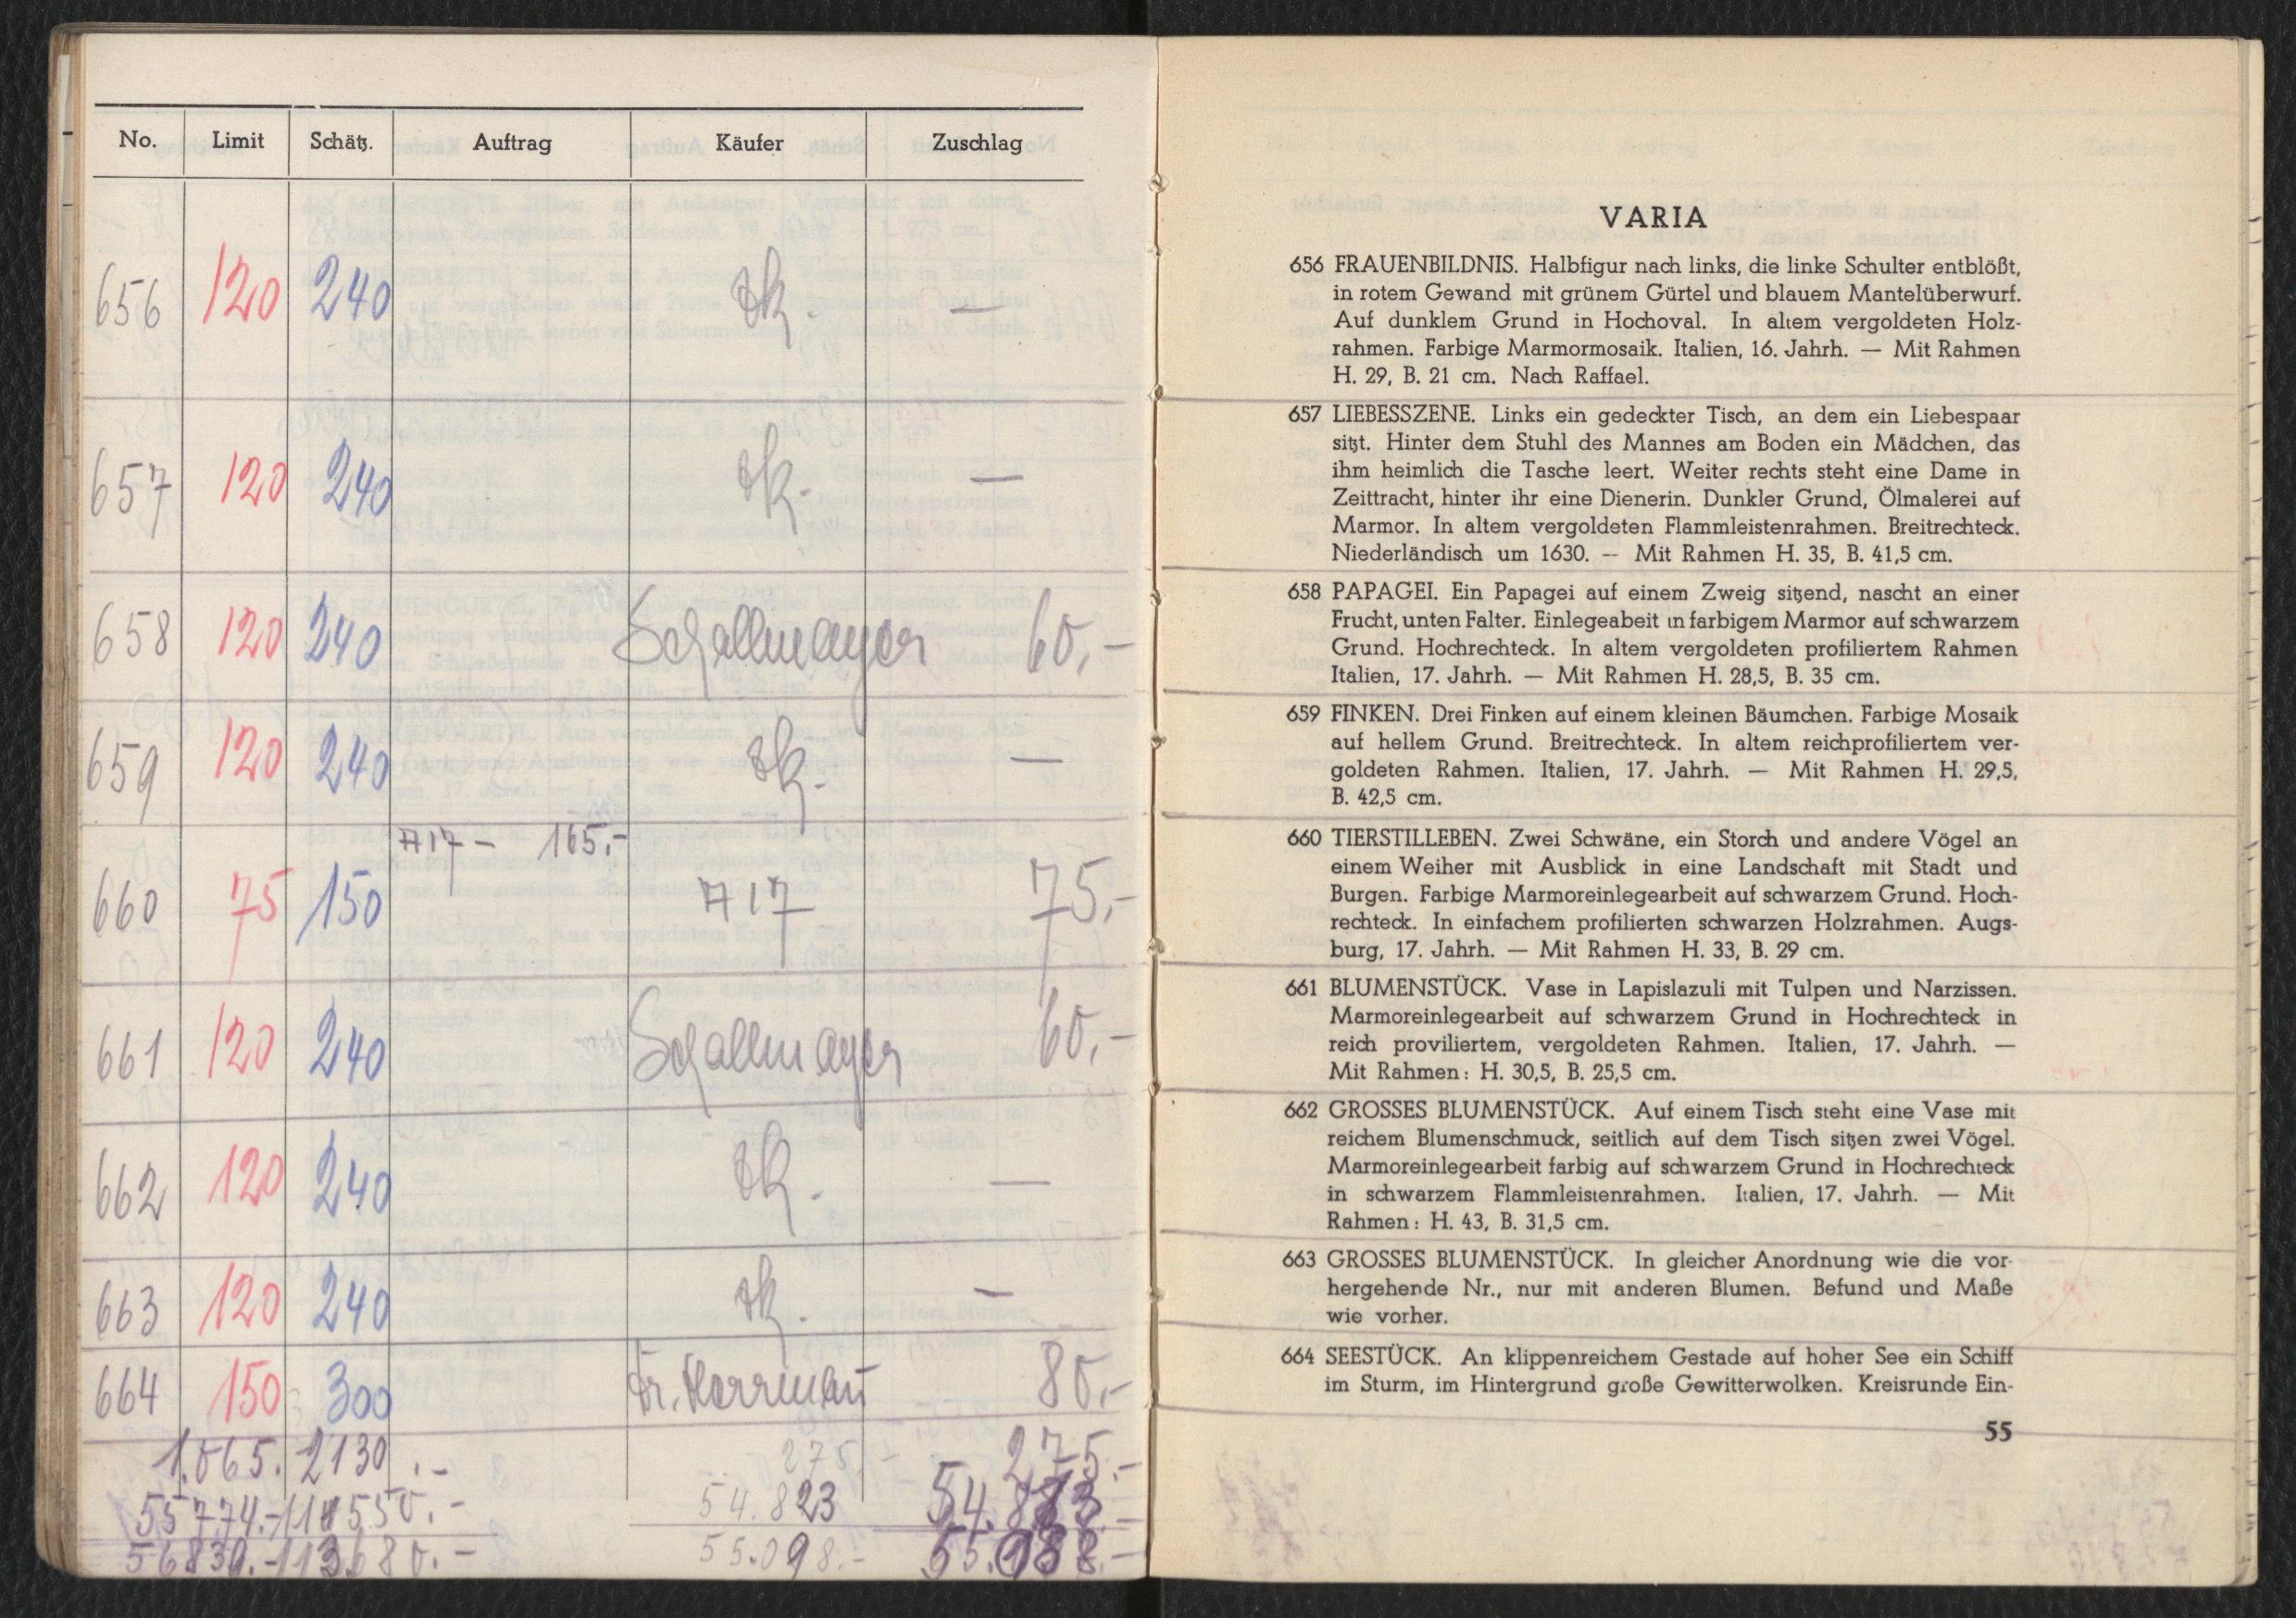 No. Limit Schätz. Auftrag Käufer Zuschlag
656 120 240 zk. —
657 120 240 zk. —
658 120 240 Schallmayer 60,-
659 120 240 zk. —
A 17 - 165,-
660 75 150 A 17 75,-
661 120 240 Schallmayer 60,-
662 120 240 zk. —
663 120 240 zk. —
664 150 300 Dr. Herrmann 80,-
1.065. 2130.- 275.- 275.-
55774.- 54.823
55.098.-
VARIA
656 FRAUENBILDNIS. Halbfigur nach links, die linke Schulter entblößt,
in rotem Gewand mit grünem Gürtel und blauem Mantelüberwurf.
Auf dunklem Grund in Hochoval. In altem vergoldeten Holz-
rahmen. Farbige Marmormosaik. Italien, 16. Jahrh. — Mit Rahmen
H. 29, B. 21 cm. Nach Raffael.
657 LIEBESSZENE. Links ein gedeckter Tisch, an dem ein Liebespaar
sitzt. Hinter dem Stuhl des Mannes am Boden ein Mädchen, das
ihm heimlich die Tasche leert. Weiter rechts steht eine Dame in
Zeittracht, hinter ihr eine Dienerin. Dunkler Grund, Ölmalerei auf
Marmor. In altem vergoldeten Flammleistenrahmen. Breitrechteck.
Niederländisch um 1630. — Mit Rahmen H. 35, B. 41,5 cm.
658 PAPAGEI. Ein Papagei auf einem Zweig sitzend, nascht an einer
Frucht, unten Falter. Einlegeabeit in farbigem Marmor auf schwarzem
Grund. Hochrechteck. In altem vergoldeten profiliertem Rahmen
Italien, 17. Jahrh. — Mit Rahmen H. 28,5, B. 35 cm.
659 FINKEN. Drei Finken auf einem kleinen Bäumchen. Farbige Mosaik
auf hellem Grund. Breitrechteck. In altem reichprofiliertem ver-
goldeten Rahmen. Italien, 17. Jahrh. — Mit Rahmen H. 29,5,
B. 42,5 cm.
660 TIERSTILLEBEN. Zwei Schwäne, ein Storch und andere Vögel an
einem Weiher mit Ausblick in eine Landschaft mit Stadt und
Burgen. Farbige Marmoreinlegearbeit auf schwarzem Grund. Hoch-
rechteck. In einfachem profilierten schwarzen Holzrahmen. Augs-
burg, 17. Jahrh. — Mit Rahmen H. 33, B. 29 cm.
661 BLUMENSTÜCK. Vase in Lapislazuli mit Tulpen und Narzissen.
Marmoreinlegearbeit auf schwarzem Grund in Hochrechteck in
reich proviliertem, vergoldeten Rahmen. Italien, 17. Jahrh. —
Mit Rahmen: H. 30,5, B. 25,5 cm.
662 GROSSES BLUMENSTÜCK. Auf einem Tisch steht eine Vase mit
reichem Blumenschmuck, seitlich auf dem Tisch sitzen zwei Vögel.
Marmoreinlegearbeit farbig auf schwarzem Grund in Hochrechteck
in schwarzem Flammleistenrahmen. Italien, 17. Jahrh. — Mit
Rahmen: H. 43, B. 31,5 cm.
663 GROSSES BLUMENSTÜCK. In gleicher Anordnung wie die vor-
hergehende Nr., nur mit anderen Blumen. Befund und Maße
wie vorher.
664 SEESTÜCK. An klippenreichem Gestade auf hoher See ein Schiff
im Sturm, im Hintergrund große Gewitterwolken. Kreisrunde Ein-
55